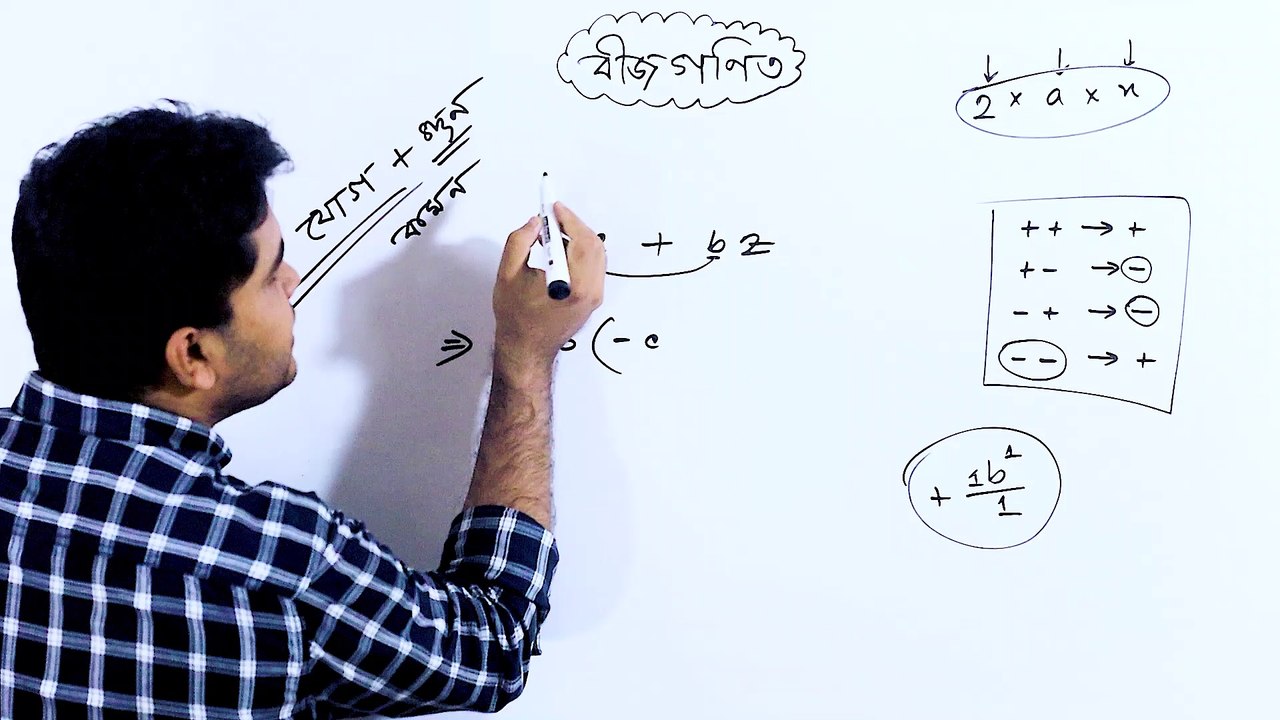 বীজগণিত
যোগ + গুন
কমন
+ bz
⇒ (- c
2 × a × x
+ + → +
+ - → -
- + → -
- - → +
+ 1b¹/1